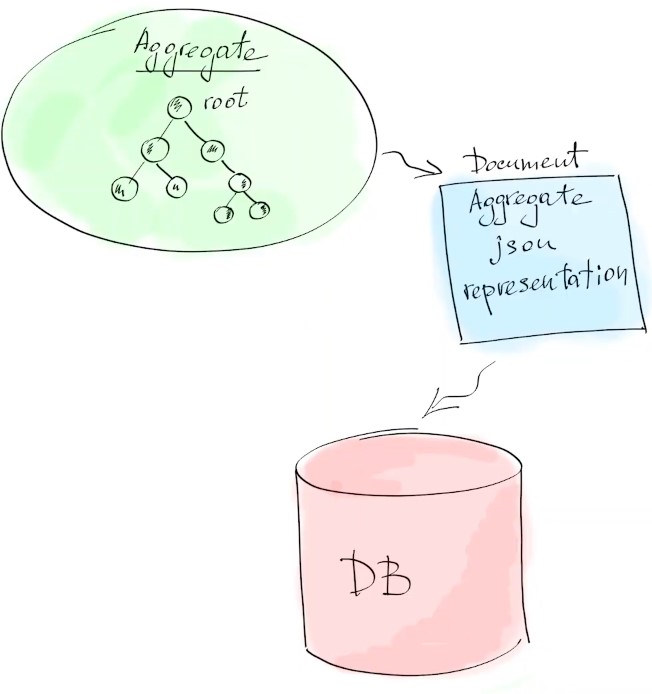 Aggregate
root
Document
Aggregate
json
representation
DB